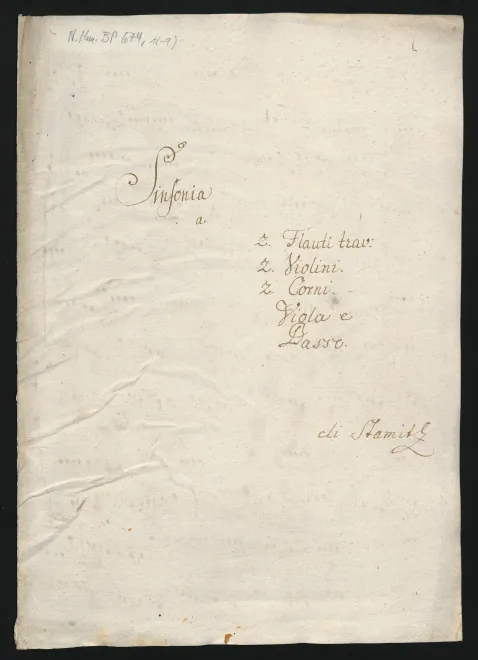 N. Mus. BP 674, 1(-9)
Sinfonia
a
2. Flauti trav:
2. Violini.
2. Corni.
Viola e
Basso.
di Stamitz